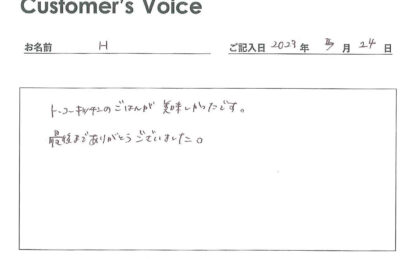 Customer's Voice
お名前 H ご記入日 2023年 3月24日
トーコーキッチンのごはんが美味しかったです。
最後までありがとうございました。